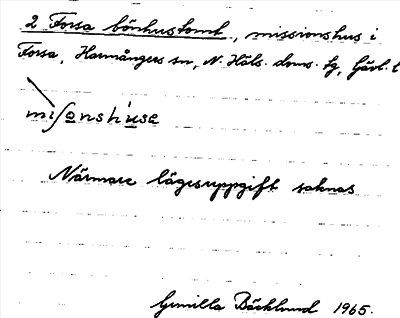 2 Forsa bönhustomt, missionshus i
Forsa, Harmångers sn, N. Häls. doms. lg, Gävl. l
miʃonshu̇se
Närmare lägesuppgift saknas
Gunilla Bäcklund 1965.